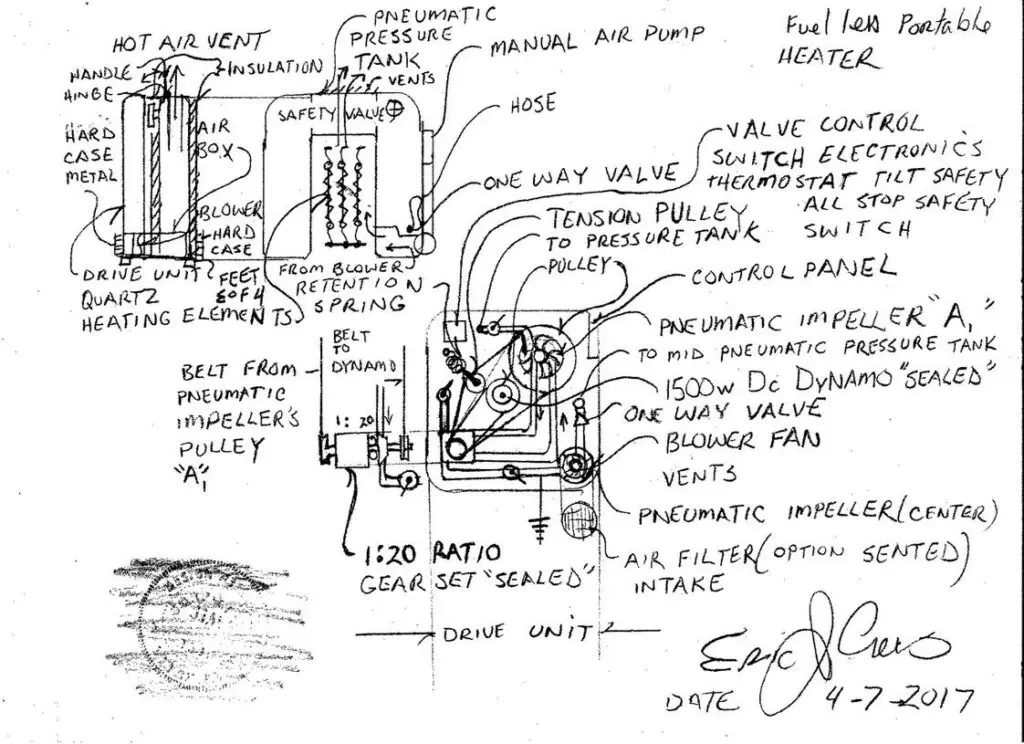 Fuelless Portable
HEATER
PNEUMATIC
PRESSURE
TANK
VENTS
HOT AIR VENT
HANDLE
HINGE
INSULATION
MANUAL AIR PUMP
SAFETY VALVE
HOSE
HARD
CASE
METAL
AIR
BOX
BLOWER
HARD
CASE
ONE WAY VALVE
VALVE CONTROL
SWITCH ELECTRONICS
THERMOSTAT TILT SAFETY
ALL STOP SAFETY
SWITCH
TENSION PULLEY
TO PRESSURE TANK
PULLEY
DRIVE UNIT
FEET
4
QUARTZ
HEATING ELEMENTS
FROM BLOWER
RETENTION
SPRING
CONTROL PANEL
PNEUMATIC IMPELLER "A,"
TO MID PNEUMATIC PRESSURE TANK
1500W DC DYNAMO "SEALED"
ONE WAY VALVE
BLOWER FAN
VENTS
PNEUMATIC IMPELLER (CENTER)
AIR FILTER (OPTION SENTED)
INTAKE
BELT
TO
DYNAMO
BELT FROM
PNEUMATIC
IMPELLER'S
PULLEY
"A",
1:20
1:20 RATIO
GEAR SET "SEALED"
DRIVE UNIT
Eric J
DATE 4-7-2017